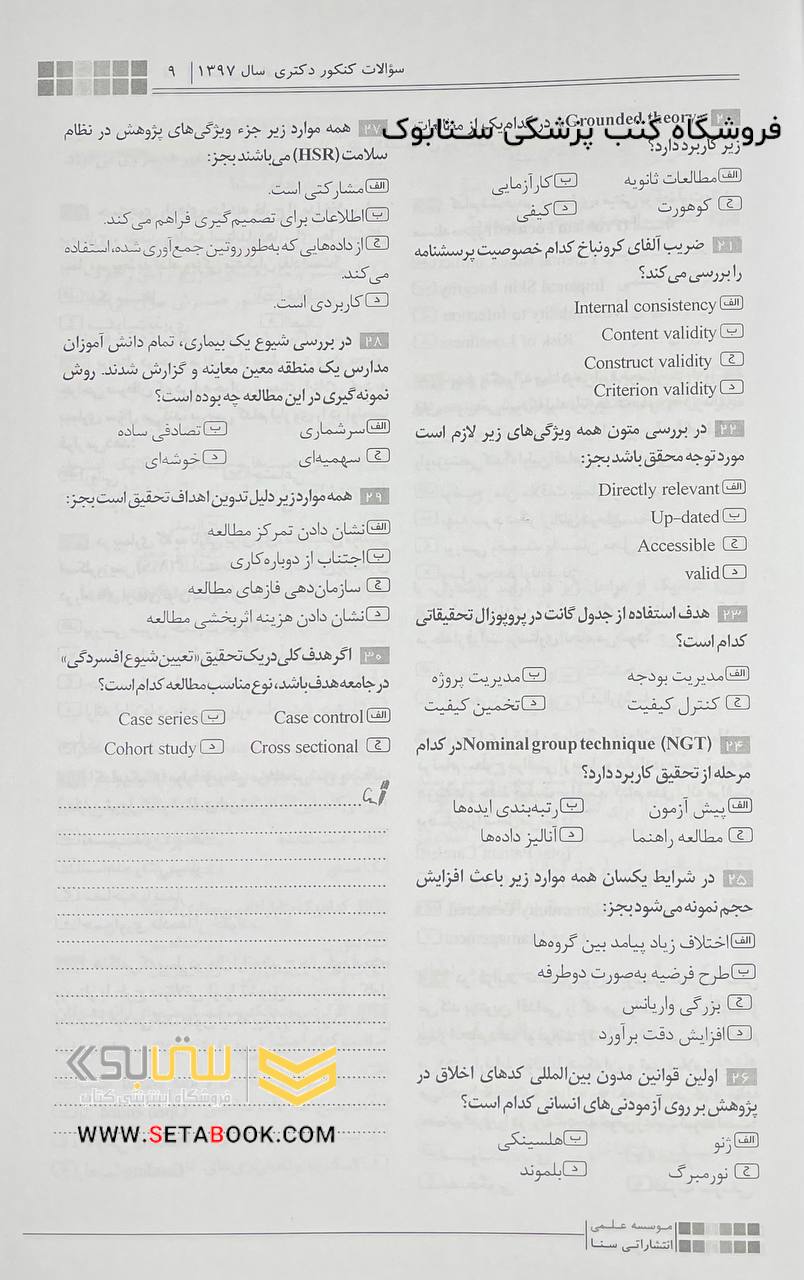 سؤالات کنکور دکتری سال ۱۳۹۷ | ۹
فروشگاه کتب پزشکی ستابوک
«Grounded theory» در کدام‌یک از مطالعات
زیر کاربرد دارد؟
الف مطالعات ثانویه ب کارآزمایی
ج کوهورت د کیفی
۲۱ ضریب آلفای کرونباخ کدام خصوصیت پرسشنامه
را بررسی می‌کند؟
الف Internal consistency
ب Content validity
ج Construct validity
د Criterion validity
۲۲ در بررسی متون همه ویژگی‌های زیر لازم است
مورد توجه محقق باشد بجز:
الف Directly relevant
ب Up-dated
ج Accessible
د valid
۲۳ هدف استفاده از جدول گانت در پروپوزال تحقیقاتی
کدام است؟
الف مدیریت بودجه ب مدیریت پروژه
ج کنترل کیفیت د تخمین کیفیت
۲۴ Nominal group technique (NGT) در کدام
مرحله از تحقیق کاربرد دارد؟
الف پیش آزمون ب رتبه‌بندی ایده‌ها
ج مطالعه راهنما د آنالیز داده‌ها
۲۵ در شرایط یکسان همه موارد زیر باعث افزایش
حجم نمونه می‌شود بجز:
الف اختلاف زیاد پیامد بین گروه‌ها
ب طرح فرضیه به‌صورت دوطرفه
ج بزرگی واریانس
د افزایش دقت برآورد
۲۶ اولین قوانین مدون بین‌المللی کدهای اخلاق در
پژوهش بر روی آزمودنی‌های انسانی کدام است؟
الف ژنو ب هلسینکی
ج نورمبرگ د بلموند
۲۷ همه موارد زیر جزء ویژگی‌های پژوهش در نظام
سلامت (HSR) می‌باشند بجز:
الف مشارکتی است.
ب اطلاعات برای تصمیم‌گیری فراهم می‌کند.
ج از داده‌هایی که به‌طور روتین جمع‌آوری شده، استفاده
می‌کند.
د کاربردی است.
۲۸ در بررسی شیوع یک بیماری، تمام دانش آموزان
مدارس یک منطقه معین معاینه و گزارش شدند. روش
نمونه‌گیری در این مطالعه چه بوده است؟
الف سرشماری ب تصادفی ساده
ج سهمیه‌ای د خوشه‌ای
۲۹ همه موارد زیر دلیل تدوین اهداف تحقیق است بجز:
الف نشان دادن تمرکز مطالعه
ب اجتناب از دوباره‌کاری
ج سازمان‌دهی فازهای مطالعه
د نشان دادن هزینه اثربخشی مطالعه
۳۰ اگر هدف کلی در یک تحقیق «تعیین شیوع افسردگی»
در جامعه هدف باشد، نوع مناسب مطالعه کدام است؟
الف Case control ب Case series
ج Cross sectional د Cohort study
ستابوک
فروشگاه اینترنتی کتاب
WWW.SETABOOK.COM
موسسه علمی
انتشاراتی سنا